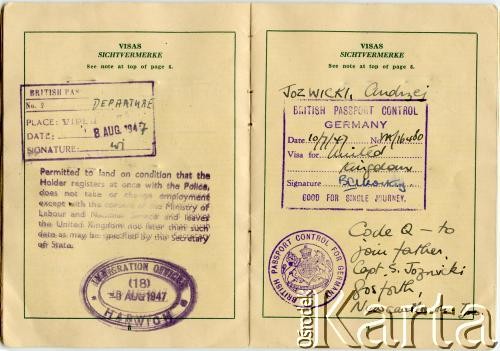 VISAS
SICHTVERMERKE
See note at top of page 8.
BRITISH PAS
No. 2 DEPARTURE
PLACE:
DATE: 8 AUG 1947
SIGNATURE:
Permitted to land on condition that the
Holder registers at once with the Police,
does not take or change employment
except with the consent of the Ministry of
Labour and National Service and leaves
the United Kingdom not later than such
date as may be specified by the Secretary
of State.
IMMIGRATION OFFICER
(18)
-8 AUG 1947
HARWICH
8
VISAS
SICHTVERMERKE
See note at top of page 8.
JOZWICKI, Andrzej
BRITISH PASSPORT CONTROL
GERMANY
Date 10/7/47 No
Visa for United
Kingdom
Signature
GOOD FOR SINGLE JOURNEY.
Code Q - to
join father,
Capt. S. Jozwicki
Gosforth
Newcastle-on-T.
BRITISH PASSPORT CONTROL FOR GERMANY
Ośrodek
Karta